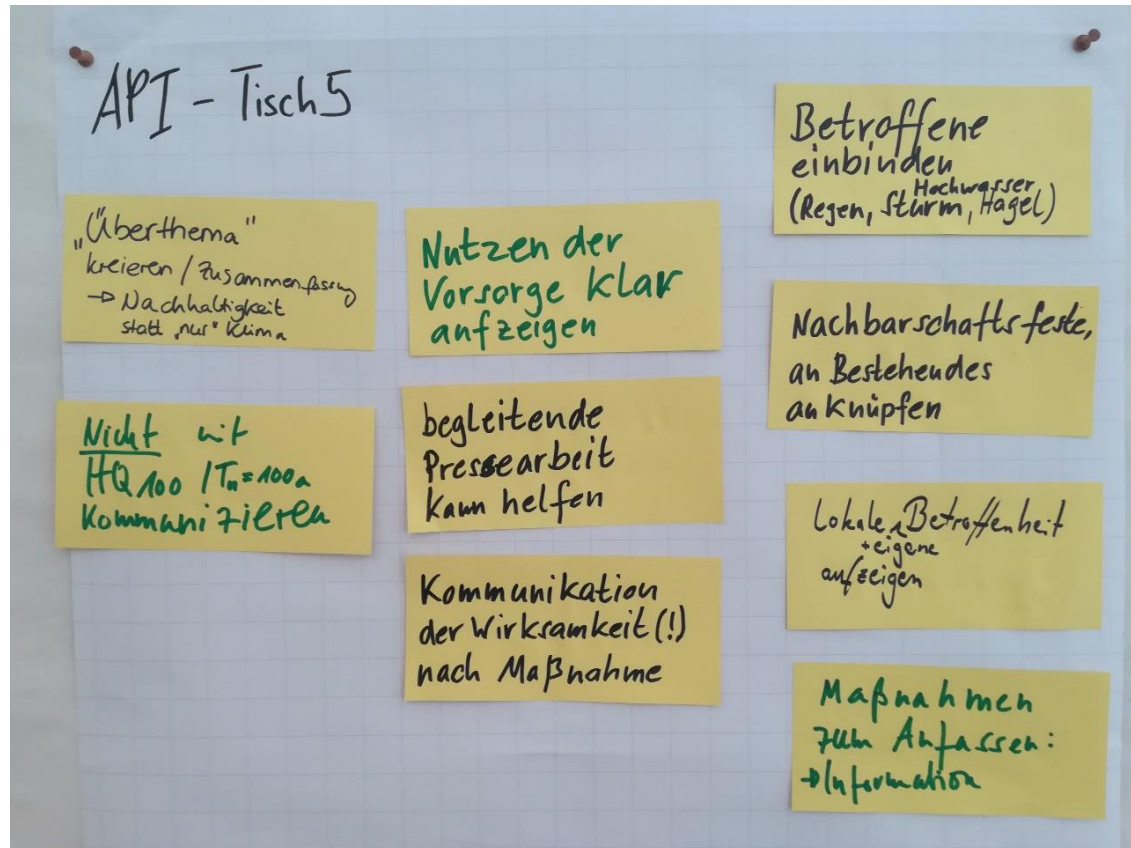 API - Tisch 5
„Überthema"
kreieren / Zusammenfassung
→ Nachhaltigkeit
statt „nur" Klima
Nicht mit
HQ100 / Tn=100a
Kommunizieren
Nutzen der
Vorsorge klar
aufzeigen
begleitende
Pressearbeit
kann helfen
Kommunikation
der Wirksamkeit (!)
nach Maßnahme
Betroffene
einbinden
Hochwasser
(Regen, Sturm, Hagel)
Nachbarschaftsfeste,
an Bestehendes
anknüpfen
Lokale Betroffenheit
+ eigene
aufzeigen
Maßnahmen
zum Anfassen:
→ Information